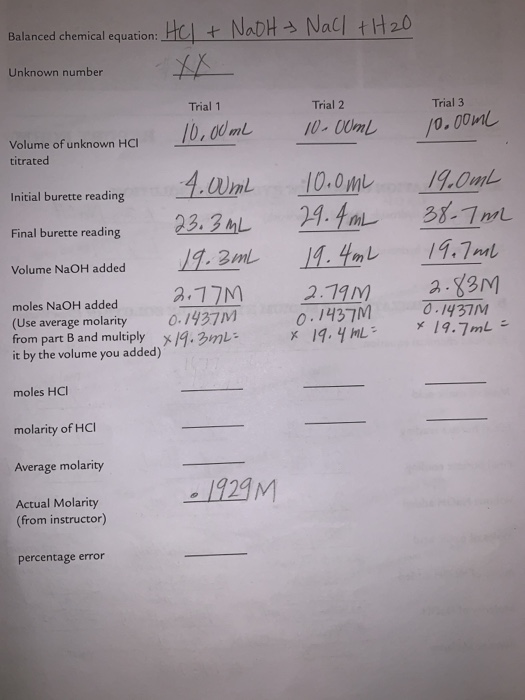 Balanced chemical equation: HCl + NaOH → NaCl + H2O
Unknown number XX
Trial 1 Trial 2 Trial 3
Volume of unknown HCl titrated 10.00mL 10.00mL 10.00mL
Initial burette reading 4.00mL 10.0mL 19.0mL
Final burette reading 23.3mL 29.4mL 38.7mL
Volume NaOH added 19.3mL 19.4mL 19.7mL
2.77M 2.79M 2.83M
moles NaOH added
(Use average molarity 0.1437M 0.1437M 0.1437M
from part B and multiply ×19.3mL= × 19.4mL= × 19.7mL =
it by the volume you added)
moles HCl
molarity of HCl
Average molarity
Actual Molarity .1929M
(from instructor)
percentage error